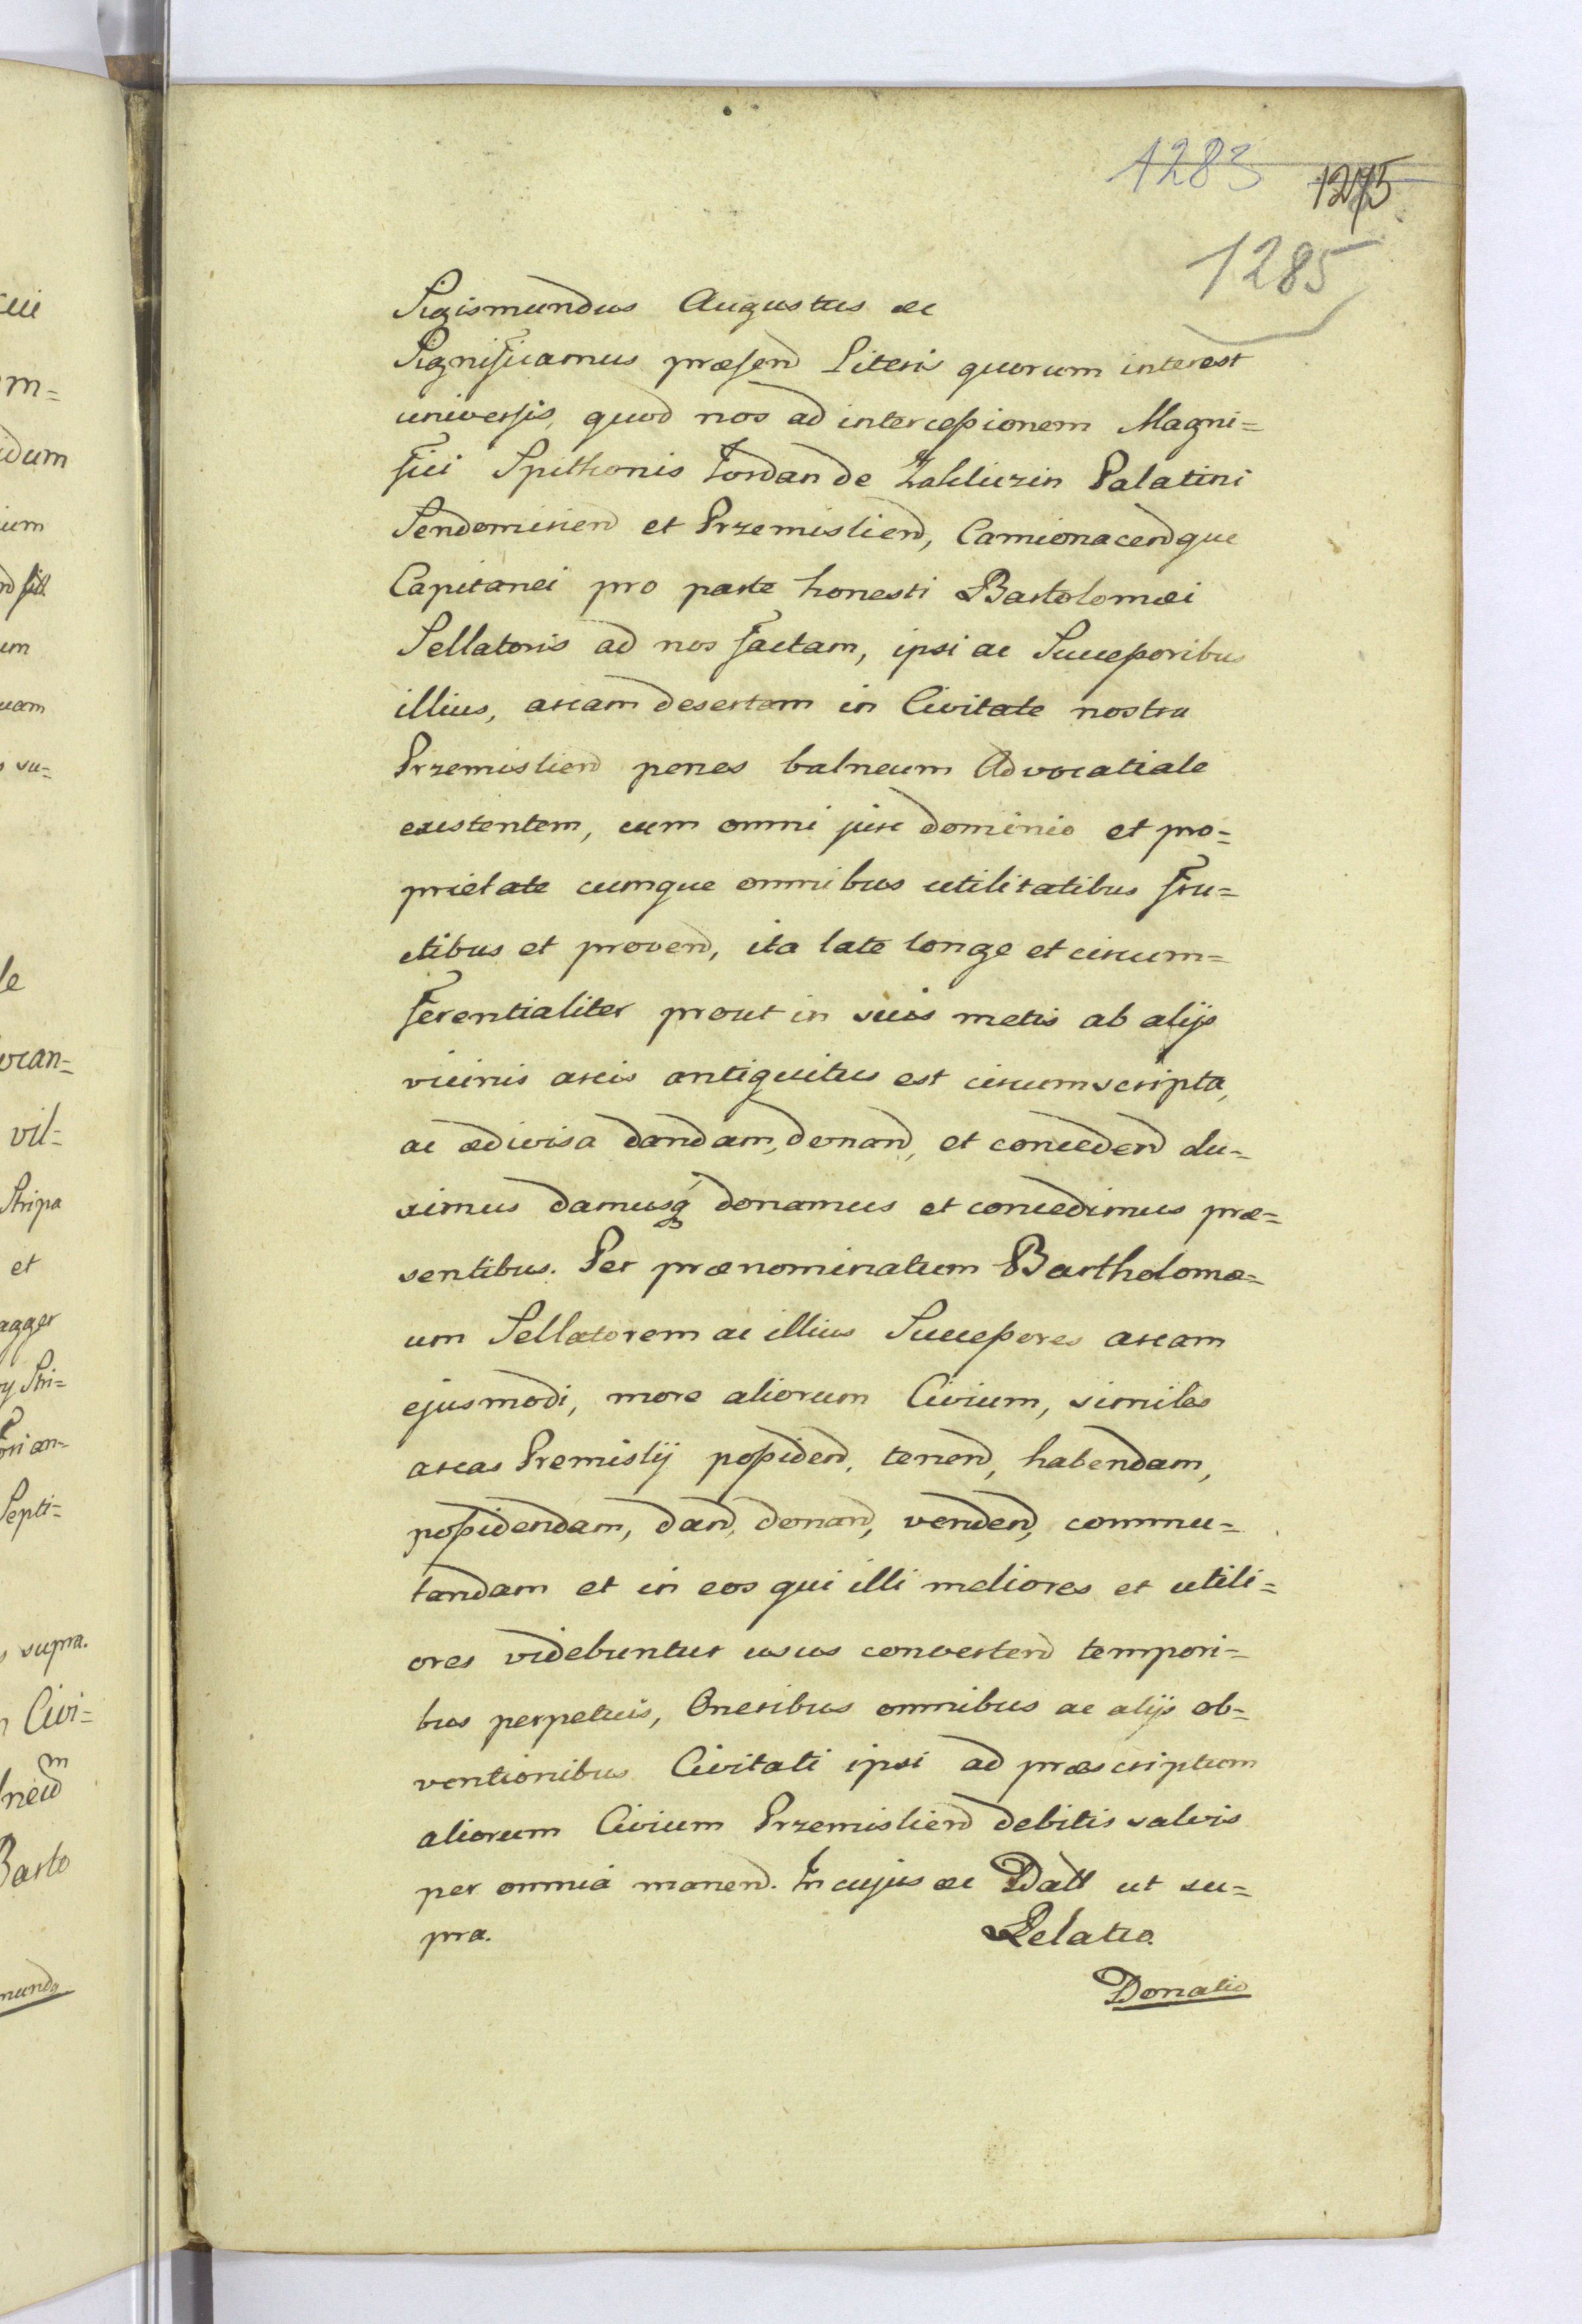 1283 1275
1285
Sigismundus Augustus &c
Significamus præsend Literis quorum interest
universis, quod nos ad intercessionem Magni=
fici Spithonis Jordan de Zakliczin Palatini
Sendomiriend et Przemisliend, Camionacendque
Capitanei pro parte honesti Bartolomæi
Sellatoris ad nos factam, ipsi ac Successoribus
illius, aream desertam in Civitate nostra
Przemisliend penes balneum Advocatiale
existentem, cum omni jure dominio et pro=
prietate cumque omnibus utilitatibus fru=
ctibus et provend, ita late longe et circum=
ferentialiter prout in suis metis ab alijs
vicinis areis antiquitus est circumscripta,
ac ædivisa dandam, donand, et concedend du=
ximus damusq donamus et concedimus præ=
sentibus. Per prænominatum Bartholomæ=
um Sellatorem ac illius Successores aream
ejusmodi, more aliorum Civium, similes
areas Premislij possidend, tenend, habendam,
possidendam, dand, donand, vendend, commu=
tandam et in eos qui illi meliores et utili=
ores videbuntur usus convertend tempori=
bus perpetuis, Oneribus omnibus ac alijs ob=
ventionibus Civitati ipsi ad præscriptum
aliorum Civium Przemisliend debitis salvis
per omnia manend. In cujus &c Datt ut su=
pra. Relatio.
Donatio